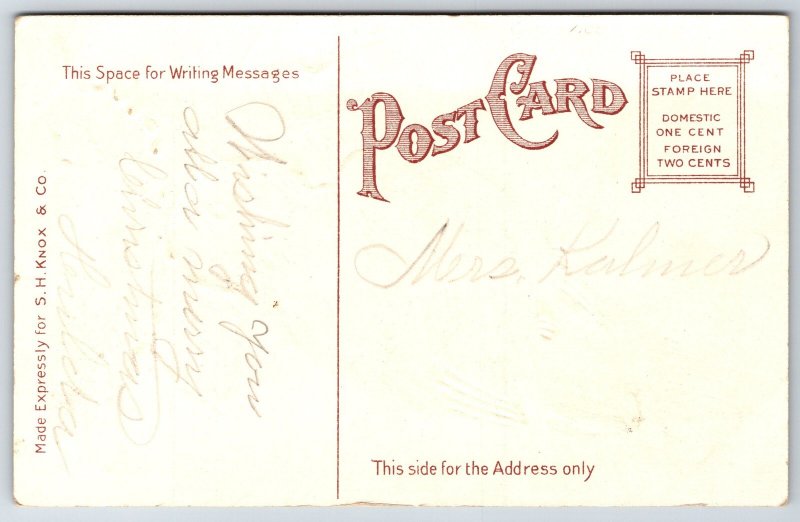 This Space for Writing Messages
Wishing you
all a merry
Christmas
Made Expressly for S. H. Knox & Co.
POST CARD
PLACE
STAMP HERE
DOMESTIC
ONE CENT
FOREIGN
TWO CENTS
Mrs. Kalmer
This side for the Address only